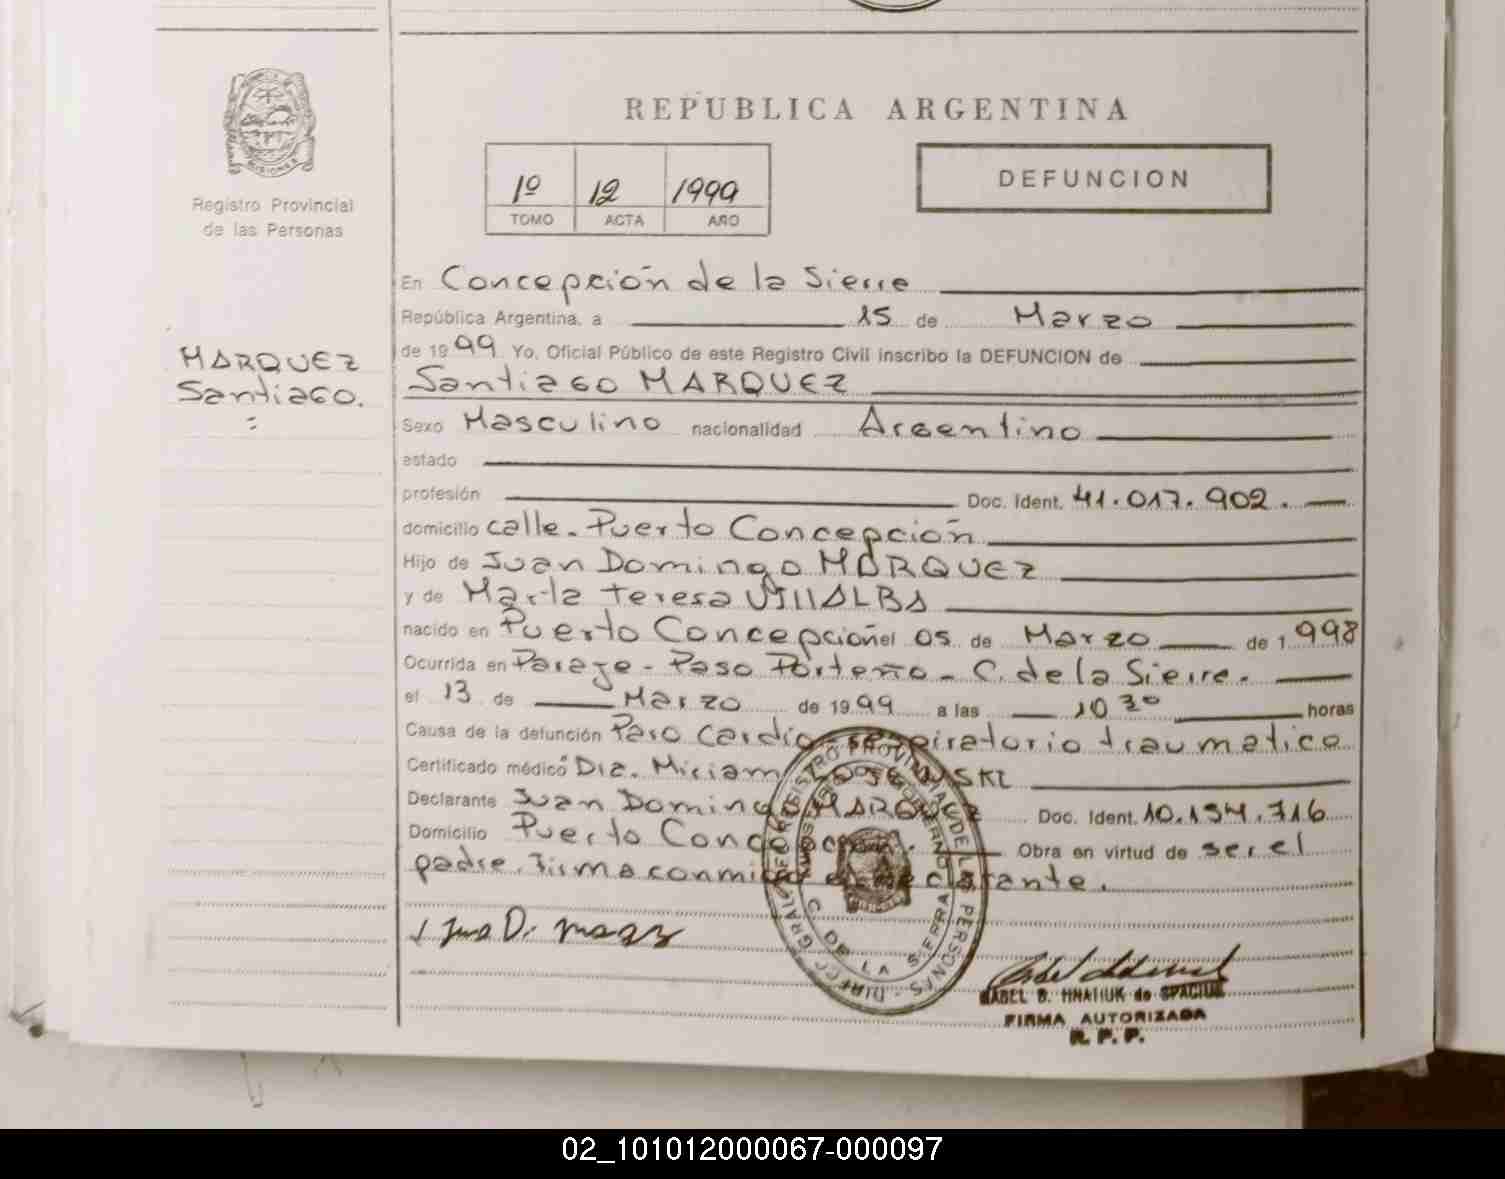 REPUBLICA ARGENTINA
MISIONES
Registro Provincial
de las Personas
1º 12 1999
TOMO ACTA AÑO
DEFUNCION
MARQUEZ
Santiago.
En Concepción de la Sierra
República Argentina, a 15 de Marzo
de 1999 Yo, Oficial Público de este Registro Civil inscribo la DEFUNCION de
Santiago MARQUEZ
Sexo Masculino nacionalidad Argentino
estado
profesión Doc. Ident. 41.017.902.
domicilio calle. Puerto Concepción
Hijo de Juan Domingo MARQUEZ
y de María Teresa VillALBA
nacido en Puerto Concepción el 05 de Marzo de 1998
Ocurrida en Paraje - Paso Porteño - C. de la Sierra.
el 13 de Marzo de 1999 a las 10 30 horas
Causa de la defunción Paro cardio-respiratorio traumatico
Certificado médico Dra. Miriam
Declarante Juan Domingo MARQUEZ Doc. Ident. 10.154.716
Domicilio Puerto Concepción. Obra en virtud de ser el
padre. Firma conmigo el declarante.
DIRECC. GRAL. DE REGISTRO PROVINCIAL DE LAS PERSONAS
MINISTERIO DE GOBIERNO
C. DE LA SIERRA
MABEL B. HNATIUK de SPACIUK
FIRMA AUTORIZADA
R. P. P.
02_101012000067-000097